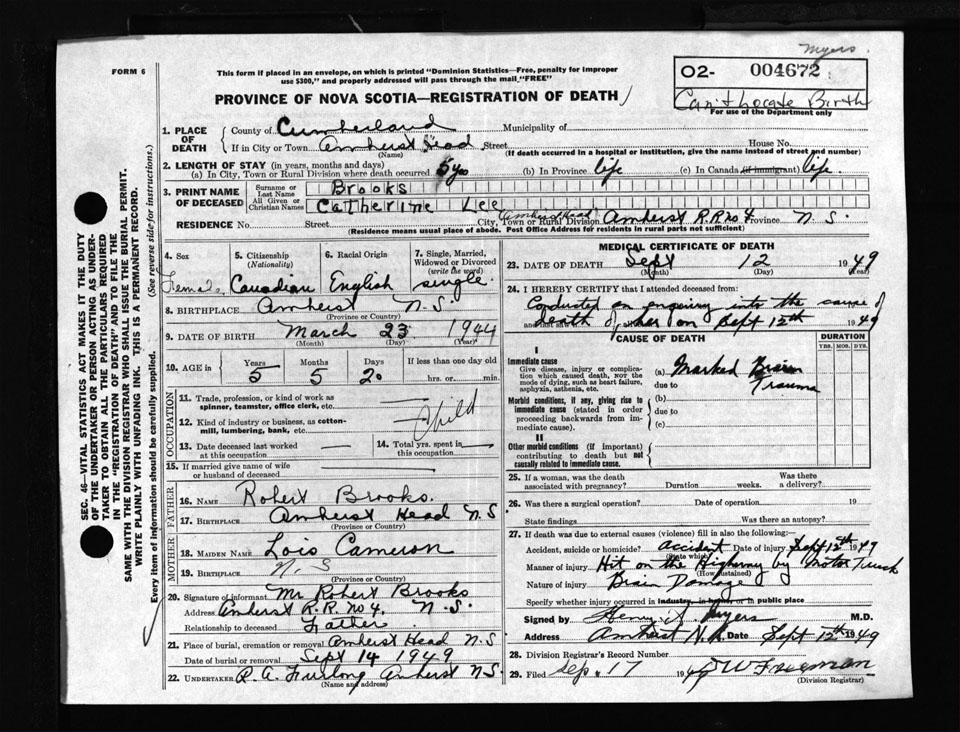 Myers.
FORM 6
This form if placed in an envelope, on which is printed "Dominion Statistics—Free, penalty for improper
use $300," and properly addressed will pass through the mail "FREE"
O2- 004672
PROVINCE OF NOVA SCOTIA—REGISTRATION OF DEATH
Can't locate Birth
For use of the Department only
1. PLACE OF DEATH
County of Cumberland Municipality of
If in City or Town Amherst Head Street House No.
(Name) (If death occurred in a hospital or institution, give the name instead of street and number)
2. LENGTH OF STAY (in years, months and days)
(a) In City, Town or Rural Division where death occurred 5 yrs (b) In Province life (c) In Canada (if immigrant) life.
3. PRINT NAME OF DECEASED
Surname or Last Name Brooks
All Given or Christian Names Catherine Lee
RESIDENCE No. Street City, Town or Rural Division Amherst Head Amherst R.R. No 4 Province N.S.
(Residence means usual place of abode. Post Office Address for residents in rural parts not sufficient)
4. Sex Female
5. Citizenship (Nationality) Canadian
6. Racial Origin English
7. Single, Married, Widowed or Divorced (write the word) single.
8. BIRTHPLACE Amherst N.S.
(Province or Country)
9. DATE OF BIRTH March 23 1944
(Month) (Day) (Year)
10. AGE in Years Months Days If less than one day old
5 5 20 hrs. or min.
OCCUPATION
11. Trade, profession, or kind of work as
spinner, teamster, office clerk, etc.
12. Kind of industry or business, as cotton-
mill, lumbering, bank, etc.
Child
13. Date deceased last worked
at this occupation
14. Total yrs. spent in
this occupation
15. If married give name of wife
or husband of deceased
FATHER
16. NAME Robert Brooks.
17. BIRTHPLACE Amherst Head N.S
(Province or Country)
MOTHER
18. MAIDEN NAME Lois Cameron
19. BIRTHPLACE N.S
(Province or Country)
20. Signature of informant Mr Robert Brooks
Address Amherst R.R. No 4. N.S.
Relationship to deceased Father
21. Place of burial, cremation or removal Amherst Head N.S
Date of burial or removal Sept 14 1949
22. UNDERTAKER R. A. Furlong Amherst N.S.
(Name and address)
MEDICAL CERTIFICATE OF DEATH
23. DATE OF DEATH Sept 12 1949
(Month) (Day) (Year)
24. I HEREBY CERTIFY that I attended deceased from:
Conducted an enquiry into the cause of
death of her on Sept 12th 1949
CAUSE OF DEATH
DURATION
YRS. MOS. DYS.
I
Immediate cause
Give disease, injury or complica-
tion which caused death, not the
mode of dying, such as heart failure,
asphyxia, asthenia, etc.
(a) Marked Brain
due to Trauma
Morbid conditions, if any, giving rise to
immediate cause (stated in order
proceeding backwards from im-
mediate cause).
(b)
due to
(c)
II
Other morbid conditions (if important)
contributing to death but not
causally related to immediate cause.
25. If a woman, was the death
associated with pregnancy? Duration weeks. Was there
a delivery?
26. Was there a surgical operation? Date of operation 19
State findings Was there an autopsy?
27. If death was due to external causes (violence) fill in also the following:
Accident, suicide or homicide? accident Date of injury Sept 12th 1949
(State which)
Manner of injury Hit on the Highway by Motor Truck
(How sustained)
Nature of injury Brain Damage
Specify whether injury occurred in industry, in home or in public place
Signed by Henry Myers M.D.
Address Amherst N.S. Date Sept 12th 1949
28. Division Registrar's Record Number
29. Filed Sep 17 1949 Freeman
(Division Registrar)
SEC. 46—VITAL STATISTICS ACT MAKES IT THE DUTY
OF THE UNDERTAKER OR PERSON ACTING AS UNDER-
TAKER TO OBTAIN ALL THE PARTICULARS REQUIRED
IN THE "REGISTRATION OF DEATH" AND TO FILE THE
SAME WITH THE DIVISION REGISTRAR WHO SHALL ISSUE THE BURIAL PERMIT.
WRITE PLAINLY WITH UNFADING INK. THIS IS A PERMANENT RECORD.
Every item of information should be carefully supplied. (See reverse side for instructions.)